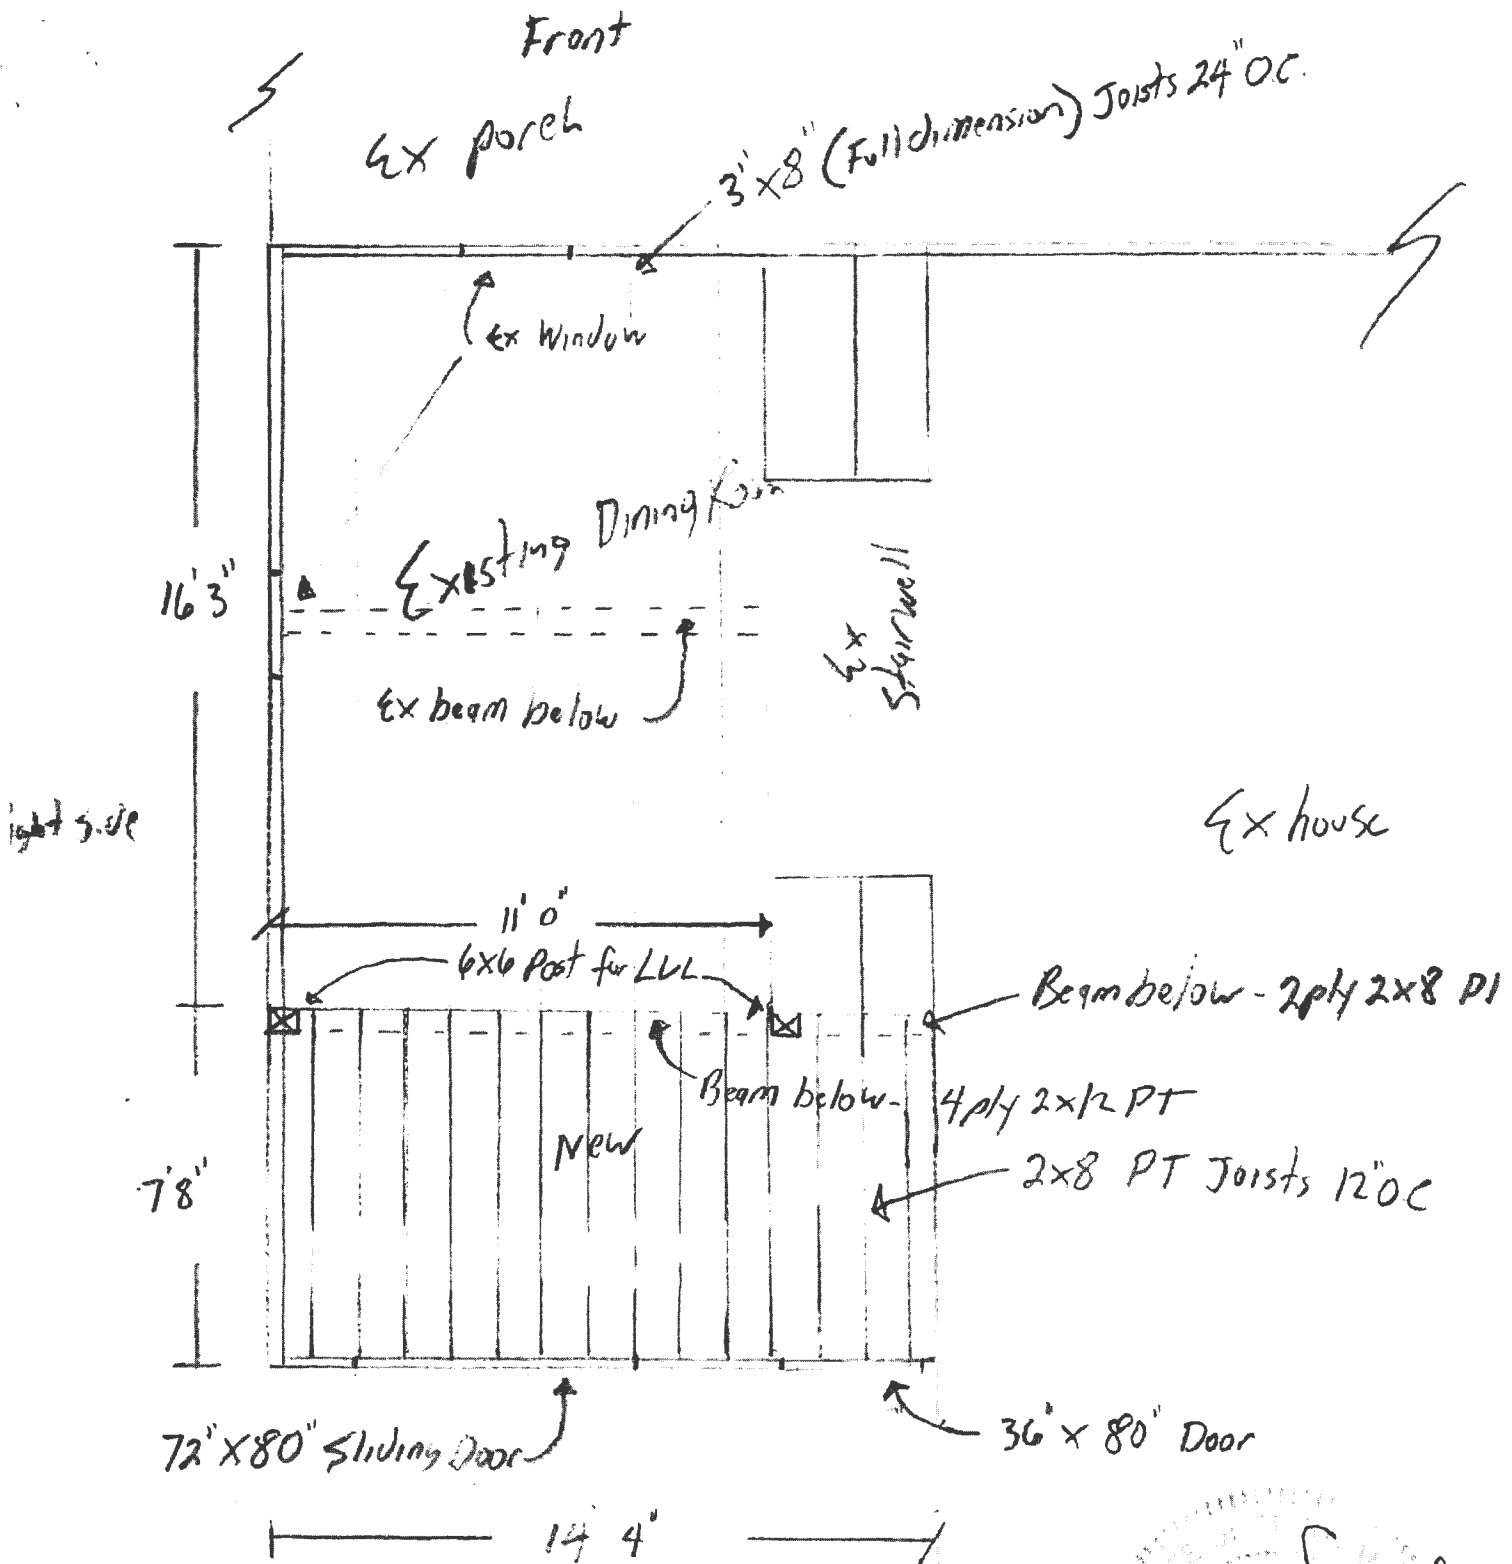 Front
Ex porch
3"x8" (Full dimension) Joists 24" O.C.
Ex Window
Existing Dining Room
16' 3"
Ex
Stairwell
Ex beam below
ight side
Ex house
11' 0"
6x6 Post for LVL
Beam below - 2ply 2x8 PT
Beam below - 4ply 2x12 PT
New
2x8 PT Joists 12" OC
7'8"
72" X 80" Sliding Door
36" x 80" Door
14' 4"